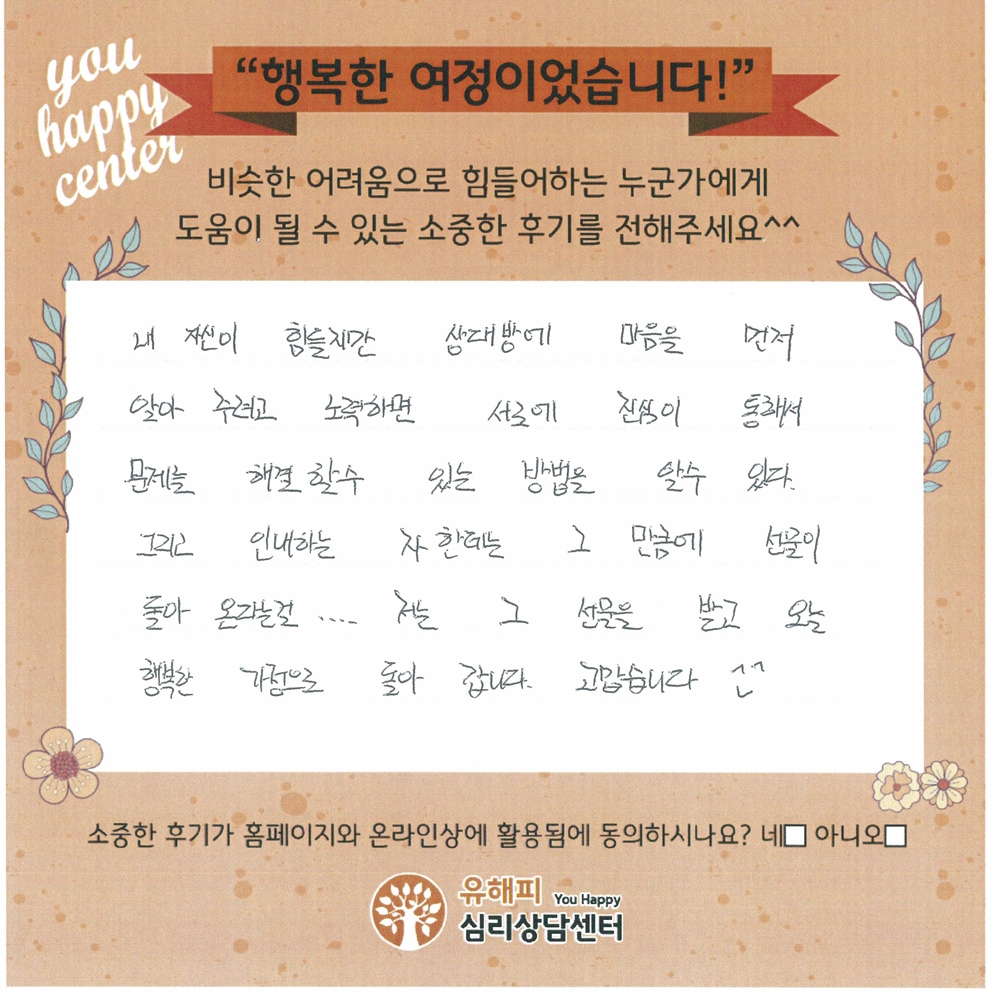 you
happy
center
“행복한 여정이었습니다!”
비슷한 어려움으로 힘들어하는 누군가에게
도움이 될 수 있는 소중한 후기를 전해주세요^^
내 자신이 힘들지만 상대방에 마음을 먼저
알아 주려고 노력하면 서로에 진심이 통해서
문제를 해결 할수 있는 방법을 알수 있다.
그리고 인내하는 자 한테는 그 만큼에 선물이
돌아 온다는걸 .... 저는 그 선물을 받고 오늘
행복한 가정으로 돌아 갑니다. 고맙습니다 ^^
소중한 후기가 홈페이지와 온라인상에 활용됨에 동의하시나요? 네□ 아니오□
유해피 You Happy
심리상담센터